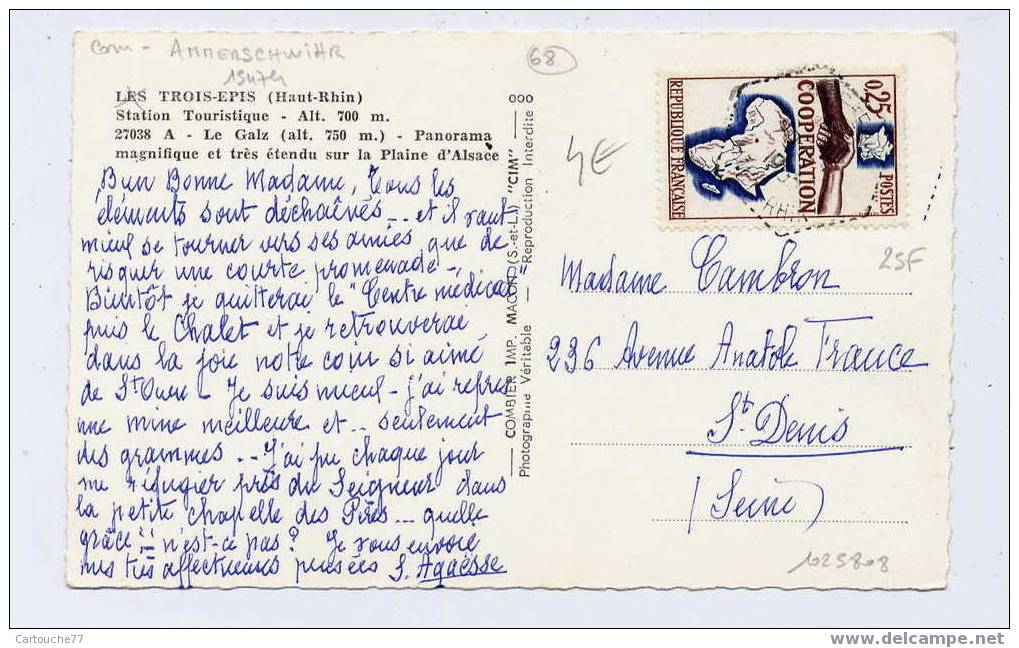 Com - AMMERSCHWIHR
68
LES TROIS-EPIS (Haut-Rhin)
Station Touristique - Alt. 700 m.
27038 A - Le Galz (alt. 750 m.) - Panorama
magnifique et très étendu sur la Plaine d'Alsace
Bien Bonne Madame, Tous les
éléments sont déchaînés -- et il vaut
mieux se tourner vers ses amies que de
risquer une courte promenade -,
Bientôt je quitterai le "Centre médical"
puis le Chalet et je retrouverai
dans la joie notre coin si aimé
de St Ouen - Je suis mieux - j'ai repris
une mine meilleure et -- seulement
des grammes -- J'ai pu chaque jour
me réfugier près du Seigneur dans
la petite chapelle des Pères --- quelle
grâce !! - n'est-ce pas ? Je vous envoie
mes très affectueuses pensées S. Agaësse
COMBIER IMP. MACON (S.-et-L.) "CIM"
Photographie Véritable — Reproduction Interdite
4€
REPUBLIQUE FRANÇAISE
COOPERATION
0,25
POSTES
25F
Madame Cambron
236 Avenue Anatole France
St Denis
(Seine)
1025808
Cartouche77
http://www.delcampe.net